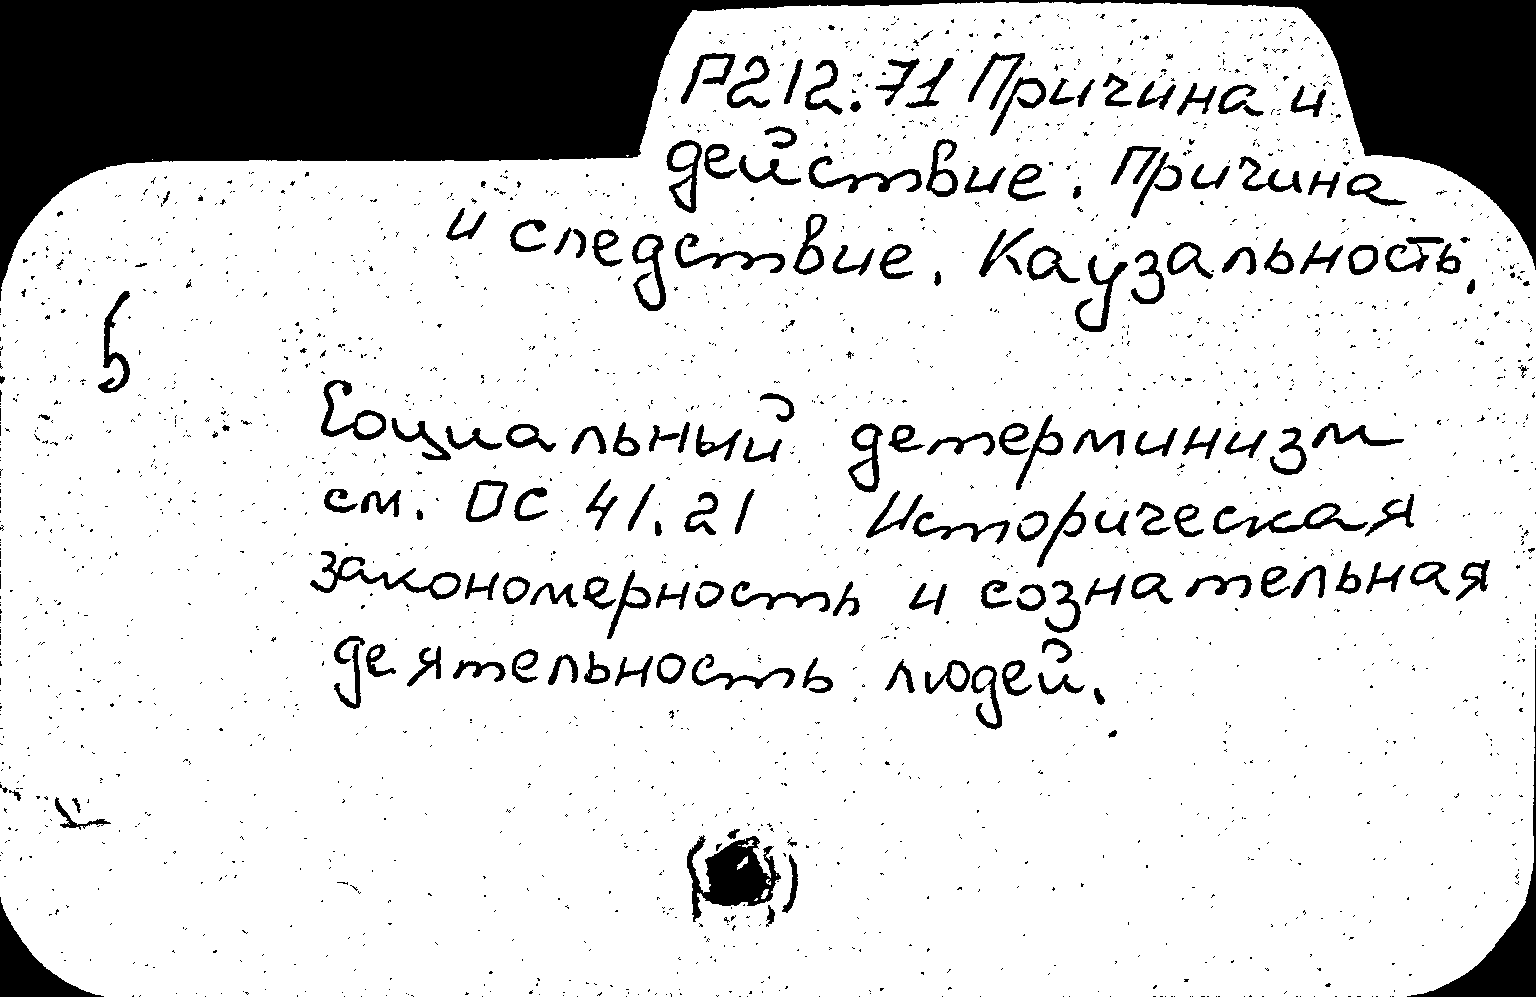 Р212.71 Причина и
действие. Причина
и следствие. Каузальность.
Социальный детерминизм
см. ОС 41.21 Историческая
закономерность и сознательная
деятельность людей.